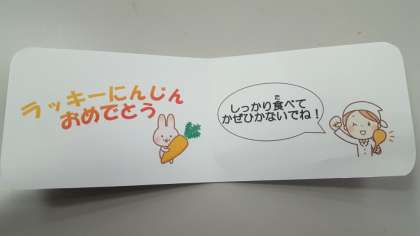 ラッキーにんじん
おめでとう
しっかり食べて
かぜひかないでね！